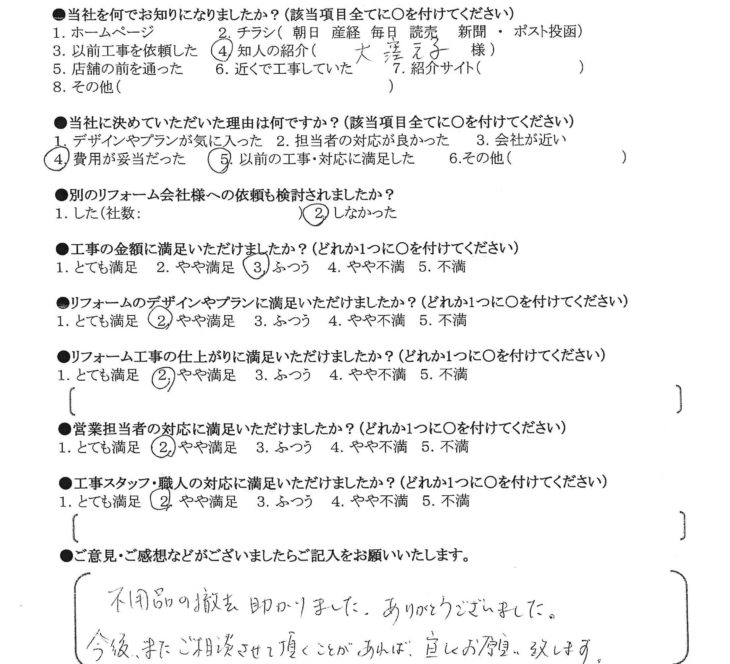 ●当社を何でお知りになりましたか?(該当項目全てに○を付けてください)
1. ホームページ 2. チラシ( 朝日 産経 毎日 読売 新聞 ・ ポスト投函)
3. 以前工事を依頼した 4. 知人の紹介( 大窪 子 様 )
5. 店舗の前を通った 6. 近くで工事していた 7. 紹介サイト( )
8. その他( )
●当社に決めていただいた理由は何ですか?(該当項目全てに○を付けてください)
1. デザインやプランが気に入った 2. 担当者の対応が良かった 3. 会社が近い
4. 費用が妥当だった 5. 以前の工事・対応に満足した 6.その他( )
●別のリフォーム会社様への依頼も検討されましたか?
1. した(社数: ) 2. しなかった
●工事の金額に満足いただけましたか?(どれか1つに○を付けてください)
1. とても満足 2. やや満足 3. ふつう 4. やや不満 5. 不満
●リフォームのデザインやプランに満足いただけましたか?(どれか1つに○を付けてください)
1. とても満足 2. やや満足 3. ふつう 4. やや不満 5. 不満
●リフォーム工事の仕上がりに満足いただけましたか?(どれか1つに○を付けてください)
1. とても満足 2. やや満足 3. ふつう 4. やや不満 5. 不満
●営業担当者の対応に満足いただけましたか?(どれか1つに○を付けてください)
1. とても満足 2. やや満足 3. ふつう 4. やや不満 5. 不満
●工事スタッフ・職人の対応に満足いただけましたか?(どれか1つに○を付けてください)
1. とても満足 2. やや満足 3. ふつう 4. やや不満 5. 不満
●ご意見・ご感想などがございましたらご記入をお願いいたします。
不用品の撤去 助かりました。ありがとうございました。
今後、またご相談させて頂くことがあれば、宜しくお願い致します。